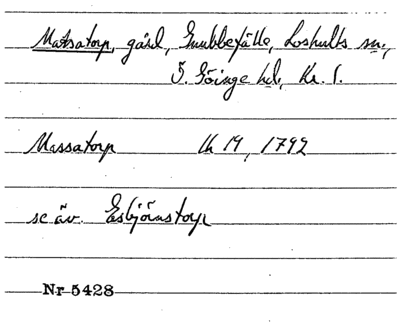 Matsatorp, gård, Gnubbefälle, Loshults sn.,
Ö. Göinge hd., Kr. l.
Massatorp Uh 19, 1792
se äv. Esbjörnstorp
Nr 5428